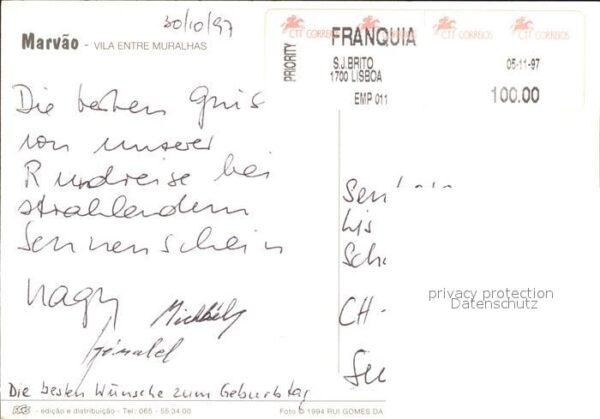 30/10/97
Marvão - VILA ENTRE MURALHAS
PRIORITY
CTT CORREIOS CTT CORREIOS CTT CORREIOS CTT CORREIOS
FRANQUIA
S.J.BRITO
1700 LISBOA
05-11-97
EMP 011
100.00
Die besten Grüs
von unserer
Rundreise bei
strahlendem
Sonnenschein
Nagy
Die besten Wünsche zum Geburtstag
Lis
Sch
CH -
privacy protection
Datenschutz
- edição e distribuição - Tel: 065 - 55 34 00
Foto © 1994 RUI GOMES DA